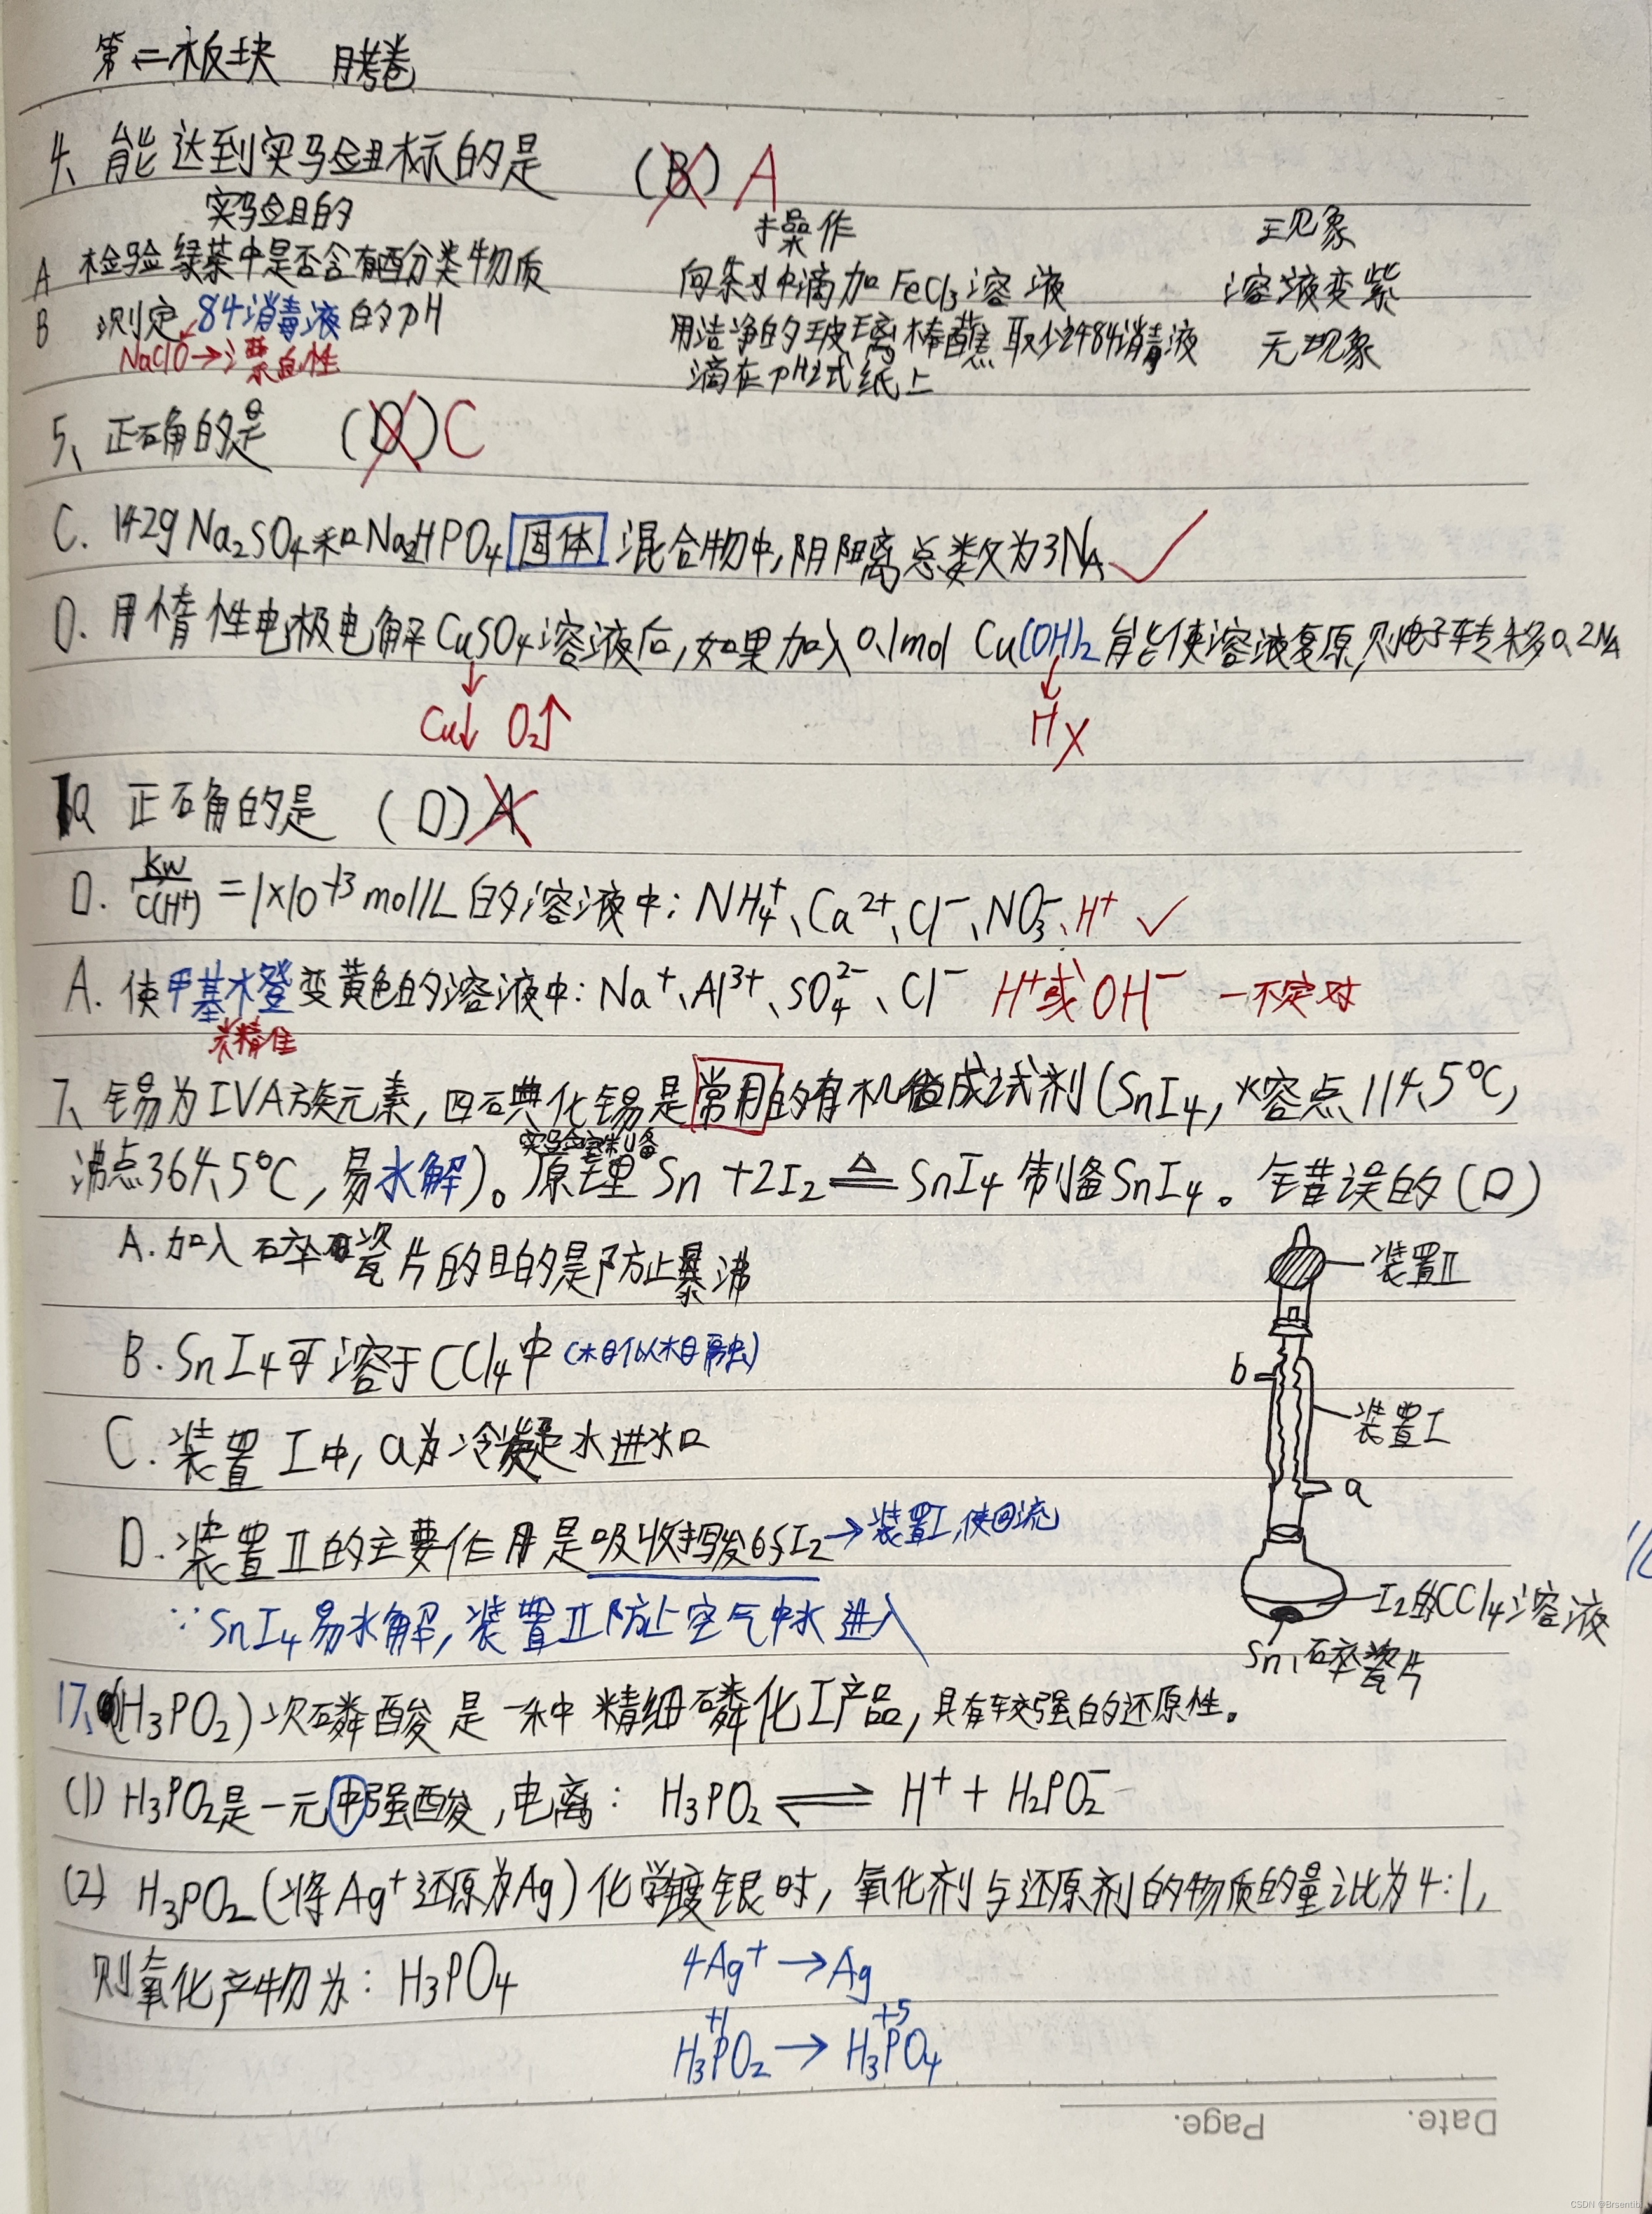 第二板块 月考卷
4、能达到实验目标的是 (B) A
实验目的 操作 现象
A 检验绿茶中是否含有酚类物质 向茶水中滴加FeCl₃溶液 溶液变紫
B 测定84消毒液的pH 用洁净的玻璃棒蘸取少许84消毒液 无现象
NaClO→漂白性 滴在pH试纸上
5、正确的是 (D) C
C. 142g Na₂SO₄和Na₂HPO₄固体混合物中,阴阳离总数为3NA ✓
D. 用惰性电极电解CuSO₄溶液后,如果加入0.1mol Cu(OH)₂能使溶液复原,则电子转移0.2NA
Cu↓ O₂↑ H ×
10 正确的是 (D) A
D. Kw/c(H⁺) = 1×10⁻¹³ mol/L的溶液中: NH₄⁺、Ca²⁺、Cl⁻、NO₃⁻、H⁺ ✓
A. 使甲基橙变黄色的溶液中: Na⁺、Al³⁺、SO₄²⁻、Cl⁻ H⁺或OH⁻ 一不定对
精准
7、锡为IVA族元素,四碘化锡是常用的有机合成试剂(SnI₄,熔点114.5℃,
实验室制备
沸点364.5℃,易水解)。原理 Sn + 2I₂ ≜ SnI₄ 制备SnI₄。错误的(D)
A. 加入碎瓷片的目的是防止暴沸
装置Ⅱ
B. SnI₄可溶于CCl₄中(相似相融)
b
装置Ⅰ
C. 装置Ⅰ中,a为冷凝水进水口
a
D. 装置Ⅱ的主要作用是吸收挥发的I₂→装置Ⅰ,使回流
I₂的CCl₄溶液
∵SnI₄易水解,装置Ⅱ防止空气中水进入
Sn、碎瓷片
17、(H₃PO₂)次磷酸是一种精细磷化工产品,具有较强的还原性。
(1) H₃PO₂是一元中强酸,电离: H₃PO₂ ⇌ H⁺ + H₂PO₂⁻
(2) H₃PO₂(将Ag⁺还原为Ag)化学镀银时,氧化剂与还原剂的物质的量之比为4:1,
则氧化产物为: H₃PO₄ 4Ag⁺→Ag
+1 +5
H₃PO₂→H₃PO₄
Date. Page.
CSDN @Brsentib